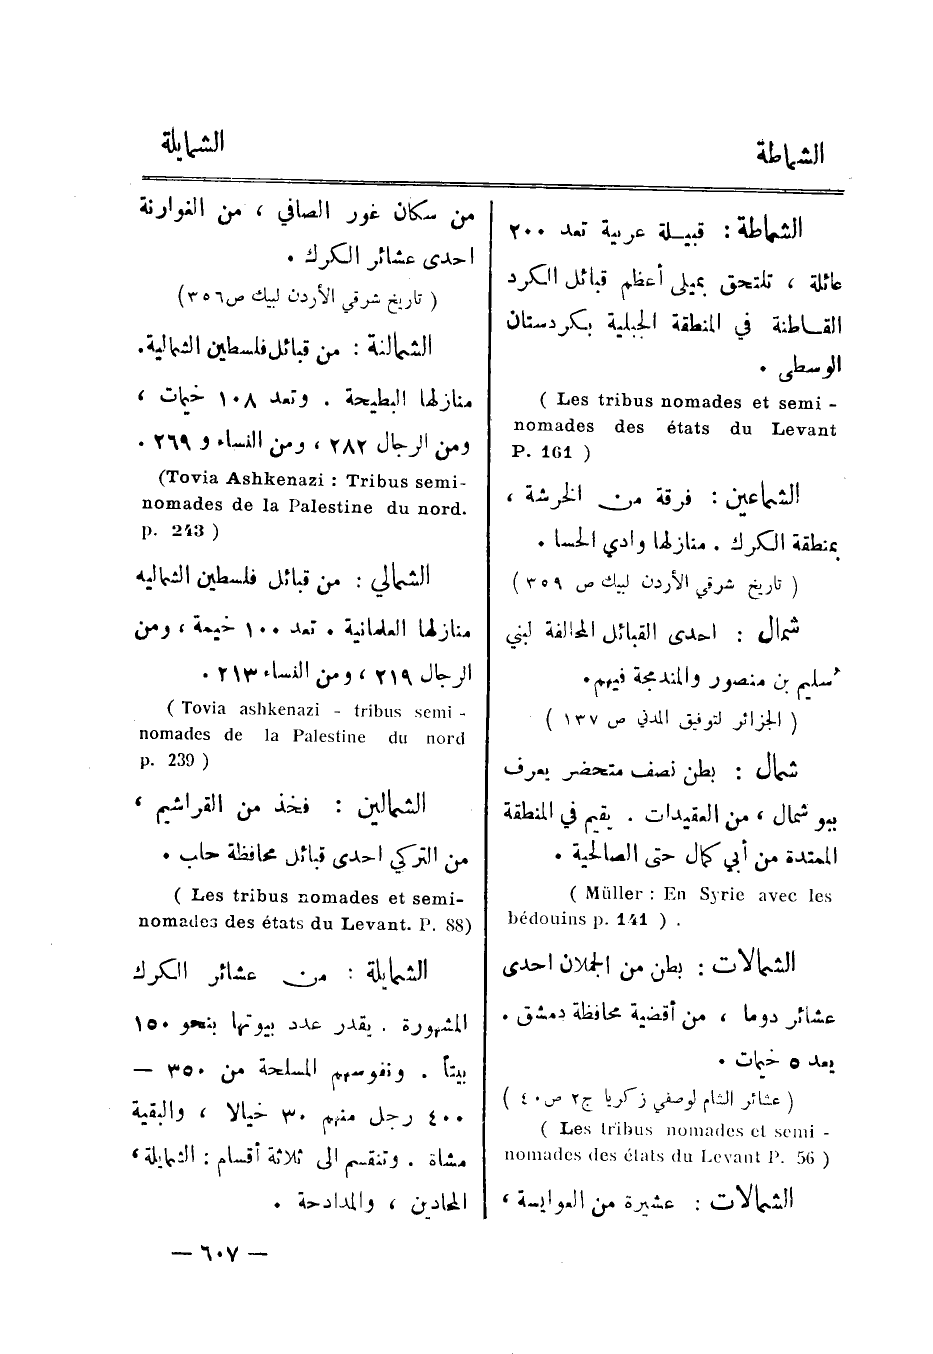 الشماطة
الشمايلة
الشماطة : قبيلة عربية تعد ٢٠٠
عائلة ، تلتحق بميلي أعظم قبائل الكرد
القاطنة في المنطقة الجبلية بكردستان
الوسطى .
( Les tribus nomades et semi -
nomades des états du Levant
P. 161 )
الشماعين : فرقة من الخرشة ،
بمنطقة الكرك . منازلها وادي الحسا .
( تاريخ شرقي الأردن لبيك ص ٣٥٩ )
شمال : احدى القبائل المحالفة لبني
سليم بن منصور والمندمجة فيهم.
( الجزائر لتوفيق المدني ص ١٣٧ )
شمال : بطن نصف متحضر يعرف
ببو شمال ، من العقيدات . يقيم في المنطقة
الممتدة من أبي كمال حتى الصالحية .
( Müller : En Syrie avec les
bédouins p. 141 ) .
الشمالات : بطن من الجملان احدى
عشائر دوما ، من أقضية محافظة دمشق .
يعد ٥ خيمات .
( عشائر الشام لوصفي زكريا ج٢ ص٤٠ )
( Les tribus nomades et semi -
nomades des états du Levant P. 56 )
الشمالات : عشيرة من العوايسة ،
من سكان غور الصافي ، من الغوارنة
احدى عشائر الكرك .
( تاريخ شرقي الأردن لبيك ص٣٥٦)
الشمالنة : من قبائل فلسطين الشمالية.
منازلها البطيحة . وتعد ١٠٨ خيمات ،
ومن الرجال ٢٨٢ ، ومن النساء و ٢٦٩ .
(Tovia Ashkenazi : Tribus semi-
nomades de la Palestine du nord.
p. 243 )
الشمالي : من قبائل فلسطين الشماليه
منازلها العلمانية . تعد ١٠٠ خيمة ، ومن
الرجال ٢١٩ ، ومن النساء ٢١٣ .
( Tovia ashkenazi - tribus semi -
nomades de la Palestine du nord
p. 239 )
الشمالين : فخذ من القراشيم ،
من التركي احدى قبائل محافظة حلب .
( Les tribus nomades et semi-
nomades des états du Levant. P. 88)
الشمايلة : من عشائر الكرك
المشهورة . يقدر عدد بيوتها بنحو ١٥٠
بيتاً . ونفوسهم المسلحة من ٣٥٠ —
٤٠٠ رجل منهم ٣٠ خيالا ، والبقية
مشاة . وتنقسم الى ثلاثة أقسام : الشمايلة ،
المحادين ، والمدادحة .
— ٦٠٧ —